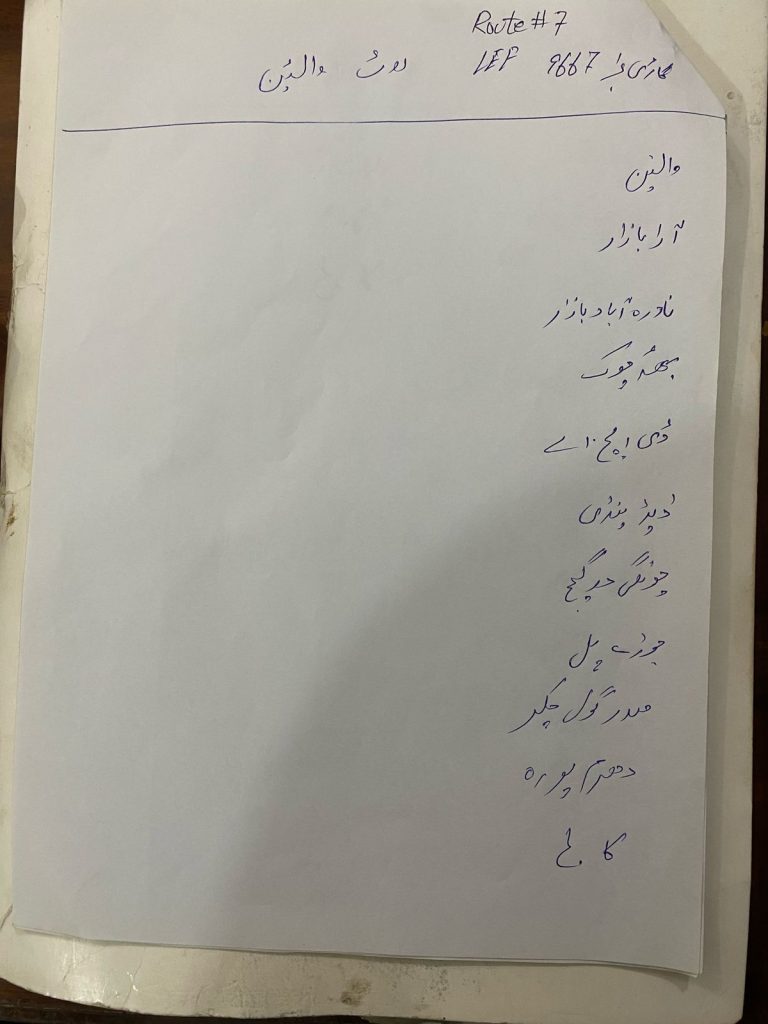 Route # 7
گاڑی نمبر LEF 9667 روٹ والٹن
والٹن
آرا بازار
نادرہ آباد بازار
بھٹہ چوک
ڈی ایچ اے
ڈیرہ پنڈی
چونگی دوگیج
جوڑے پل
صدر گول چکر
دھرم پورہ
کالج